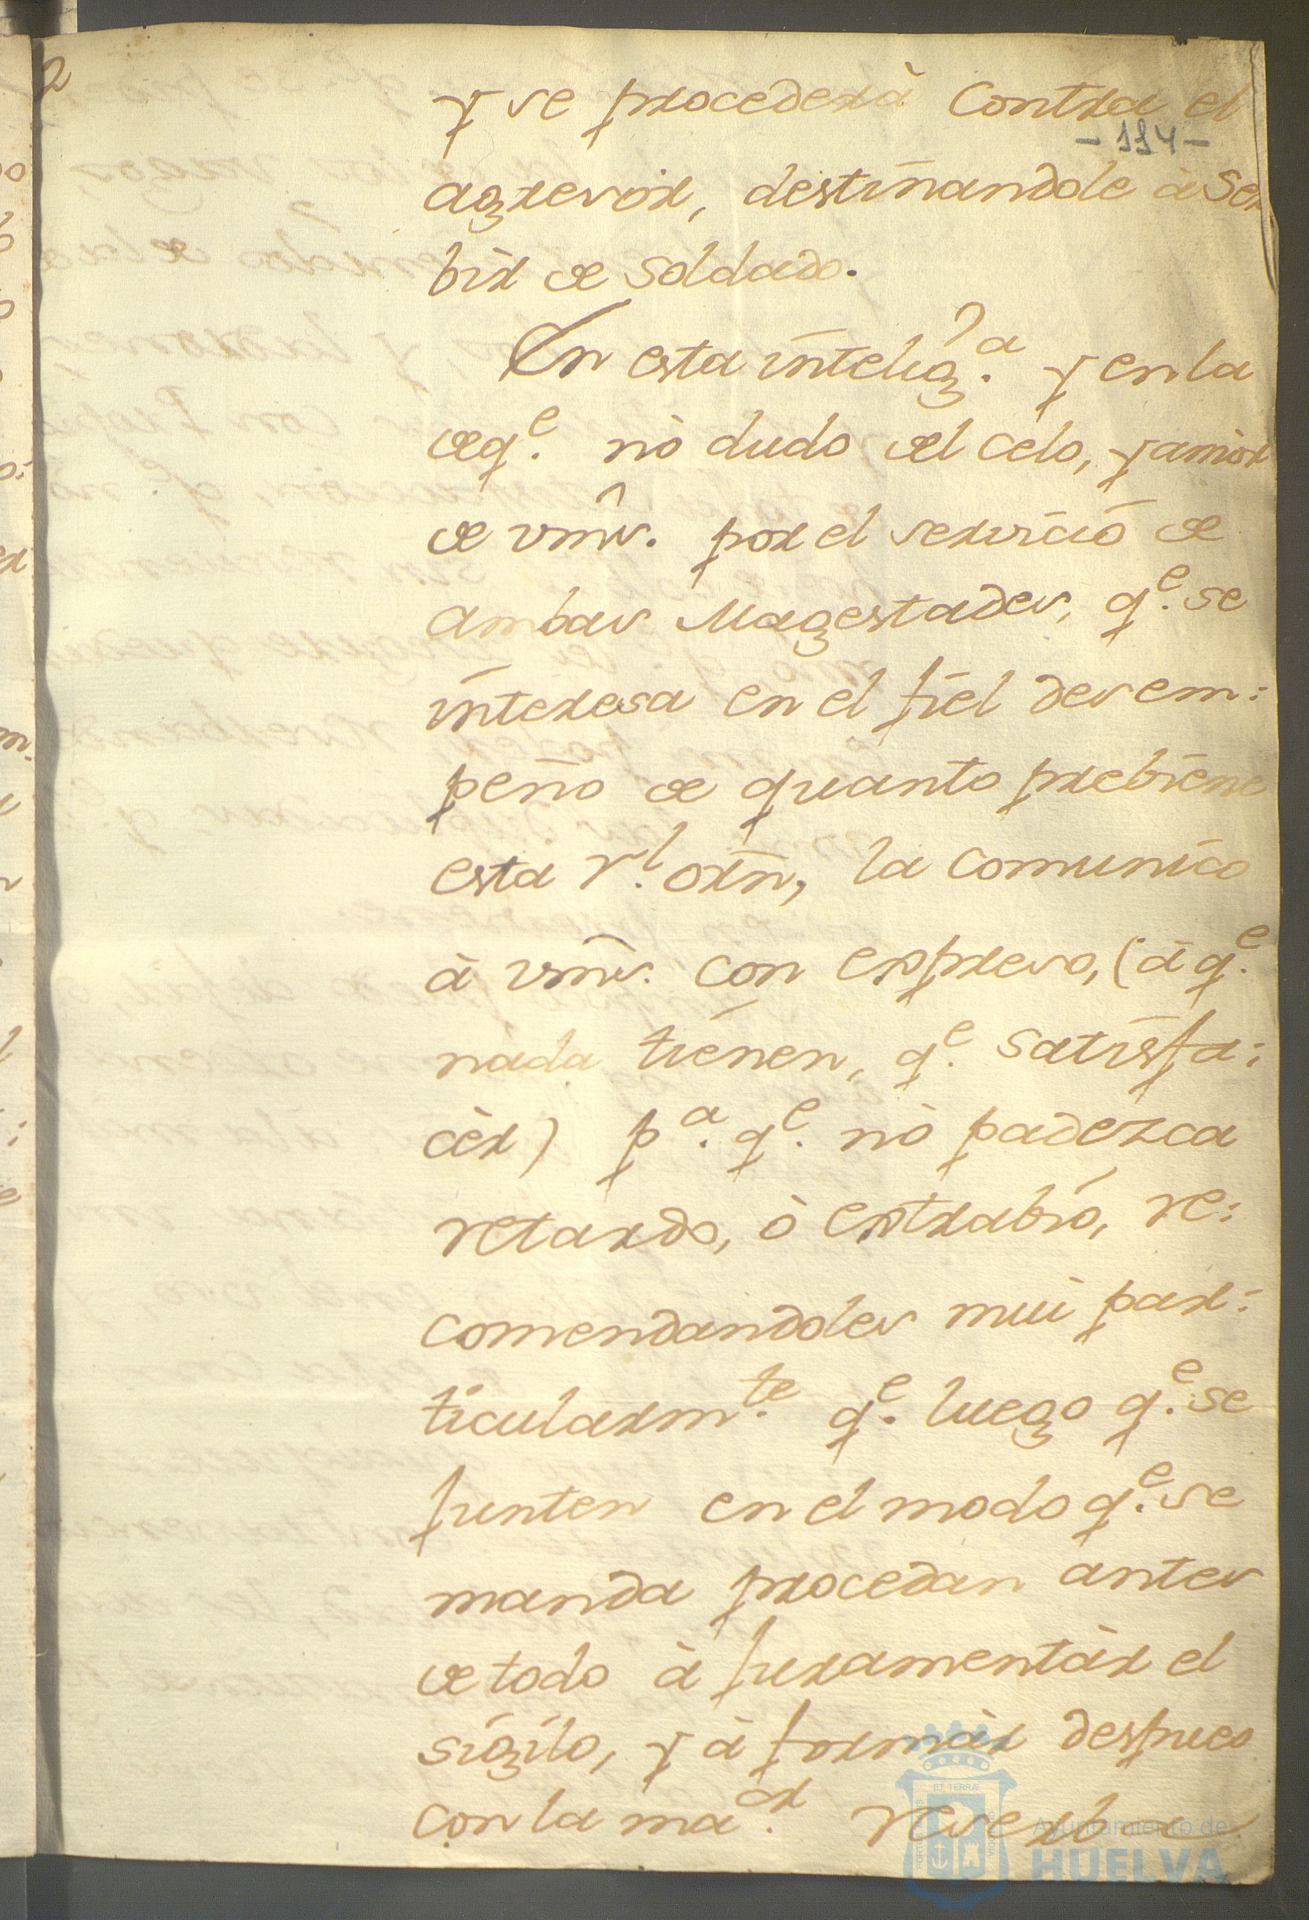 2
y se procederà contra el
- 114 -
agresòr, destinandole à ser
bìr de soldado.
En esta intelig.ª y en la
de q.e nò dudo del celo, y amòr
de vms. por el servicio de
ambas Magestades, q.e se
interesa en el fiel desem:
peño de quanto prebiene
esta r.l orñ, la comunico
à vms. con expreso, (à q.e
nada tienen, q.e satisfa:
cèr) p.a q.e nò padezca
retardo, ò extrabio, re:
comendandoles mui par:
ticularm.te q.e luego q.e se
junten en el modo q.e se
manda procedan antes
de todo à juramentàr el
sigilo, y à formàr despues
con la ma.or reserba
Ayuntamiento de
HUELVA